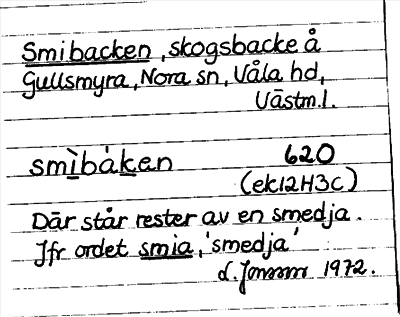 Smibacken, skogsbacke å
Gullsmyra, Nora sn, Våla hd,
Västml.
smìbàken 620
(ek12H3c)
Där står rester av en smedja.
Jfr ordet smia, 'smedja'
L. Jonsson 1972.